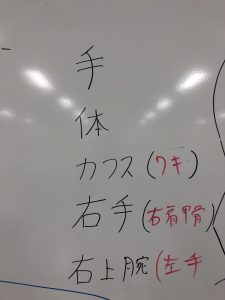 手
体
カフス(ワキ)
右手(右肩甲骨)
右上腕(左手